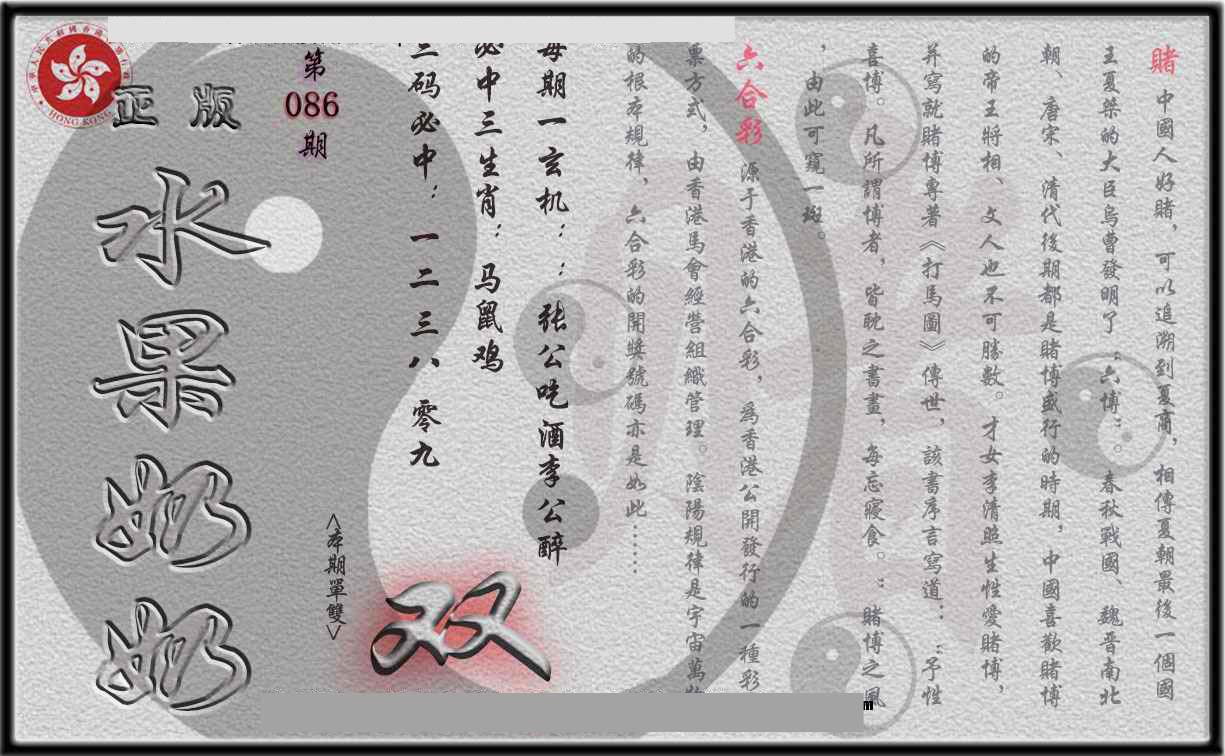 賭 中國人好賭，可以追溯到夏商，相傳夏朝最後一個國
王夏桀的大臣烏曹發明了“六博”。春秋戰國、魏晋南北
朝、唐宋、清代後期都是賭博盛行的時期，中國喜歡賭博
的帝王將相、文人也不可勝數。才女李清照生性愛賭博，
并寫就賭博專著《打馬圖》傳世，該書序言寫道：“予性
喜博。凡所謂博者，皆耽之書畫，每忘寢食。”賭博之風
，由此可窺一斑。
六合彩 源于香港的六合彩，為香港公開發行的一種彩
票方式，由香港馬會經營組織管理。陰陽規律是宇宙萬物
的根本規律，六合彩的開獎號碼亦是如此……
每期一玄机：：张公吃酒李公醉
必中三生肖：马鼠鸡
三码必中：一二三八零九
第
086
期
<本期單雙>
双
正版
水果奶奶
HONG KONG